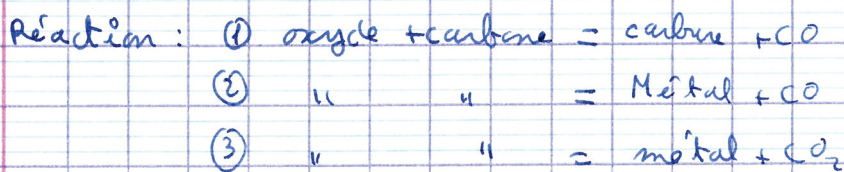 Réaction : ① oxyde + carbone = carbure + CO
② " " = Métal + CO
③ " " = métal + CO₂